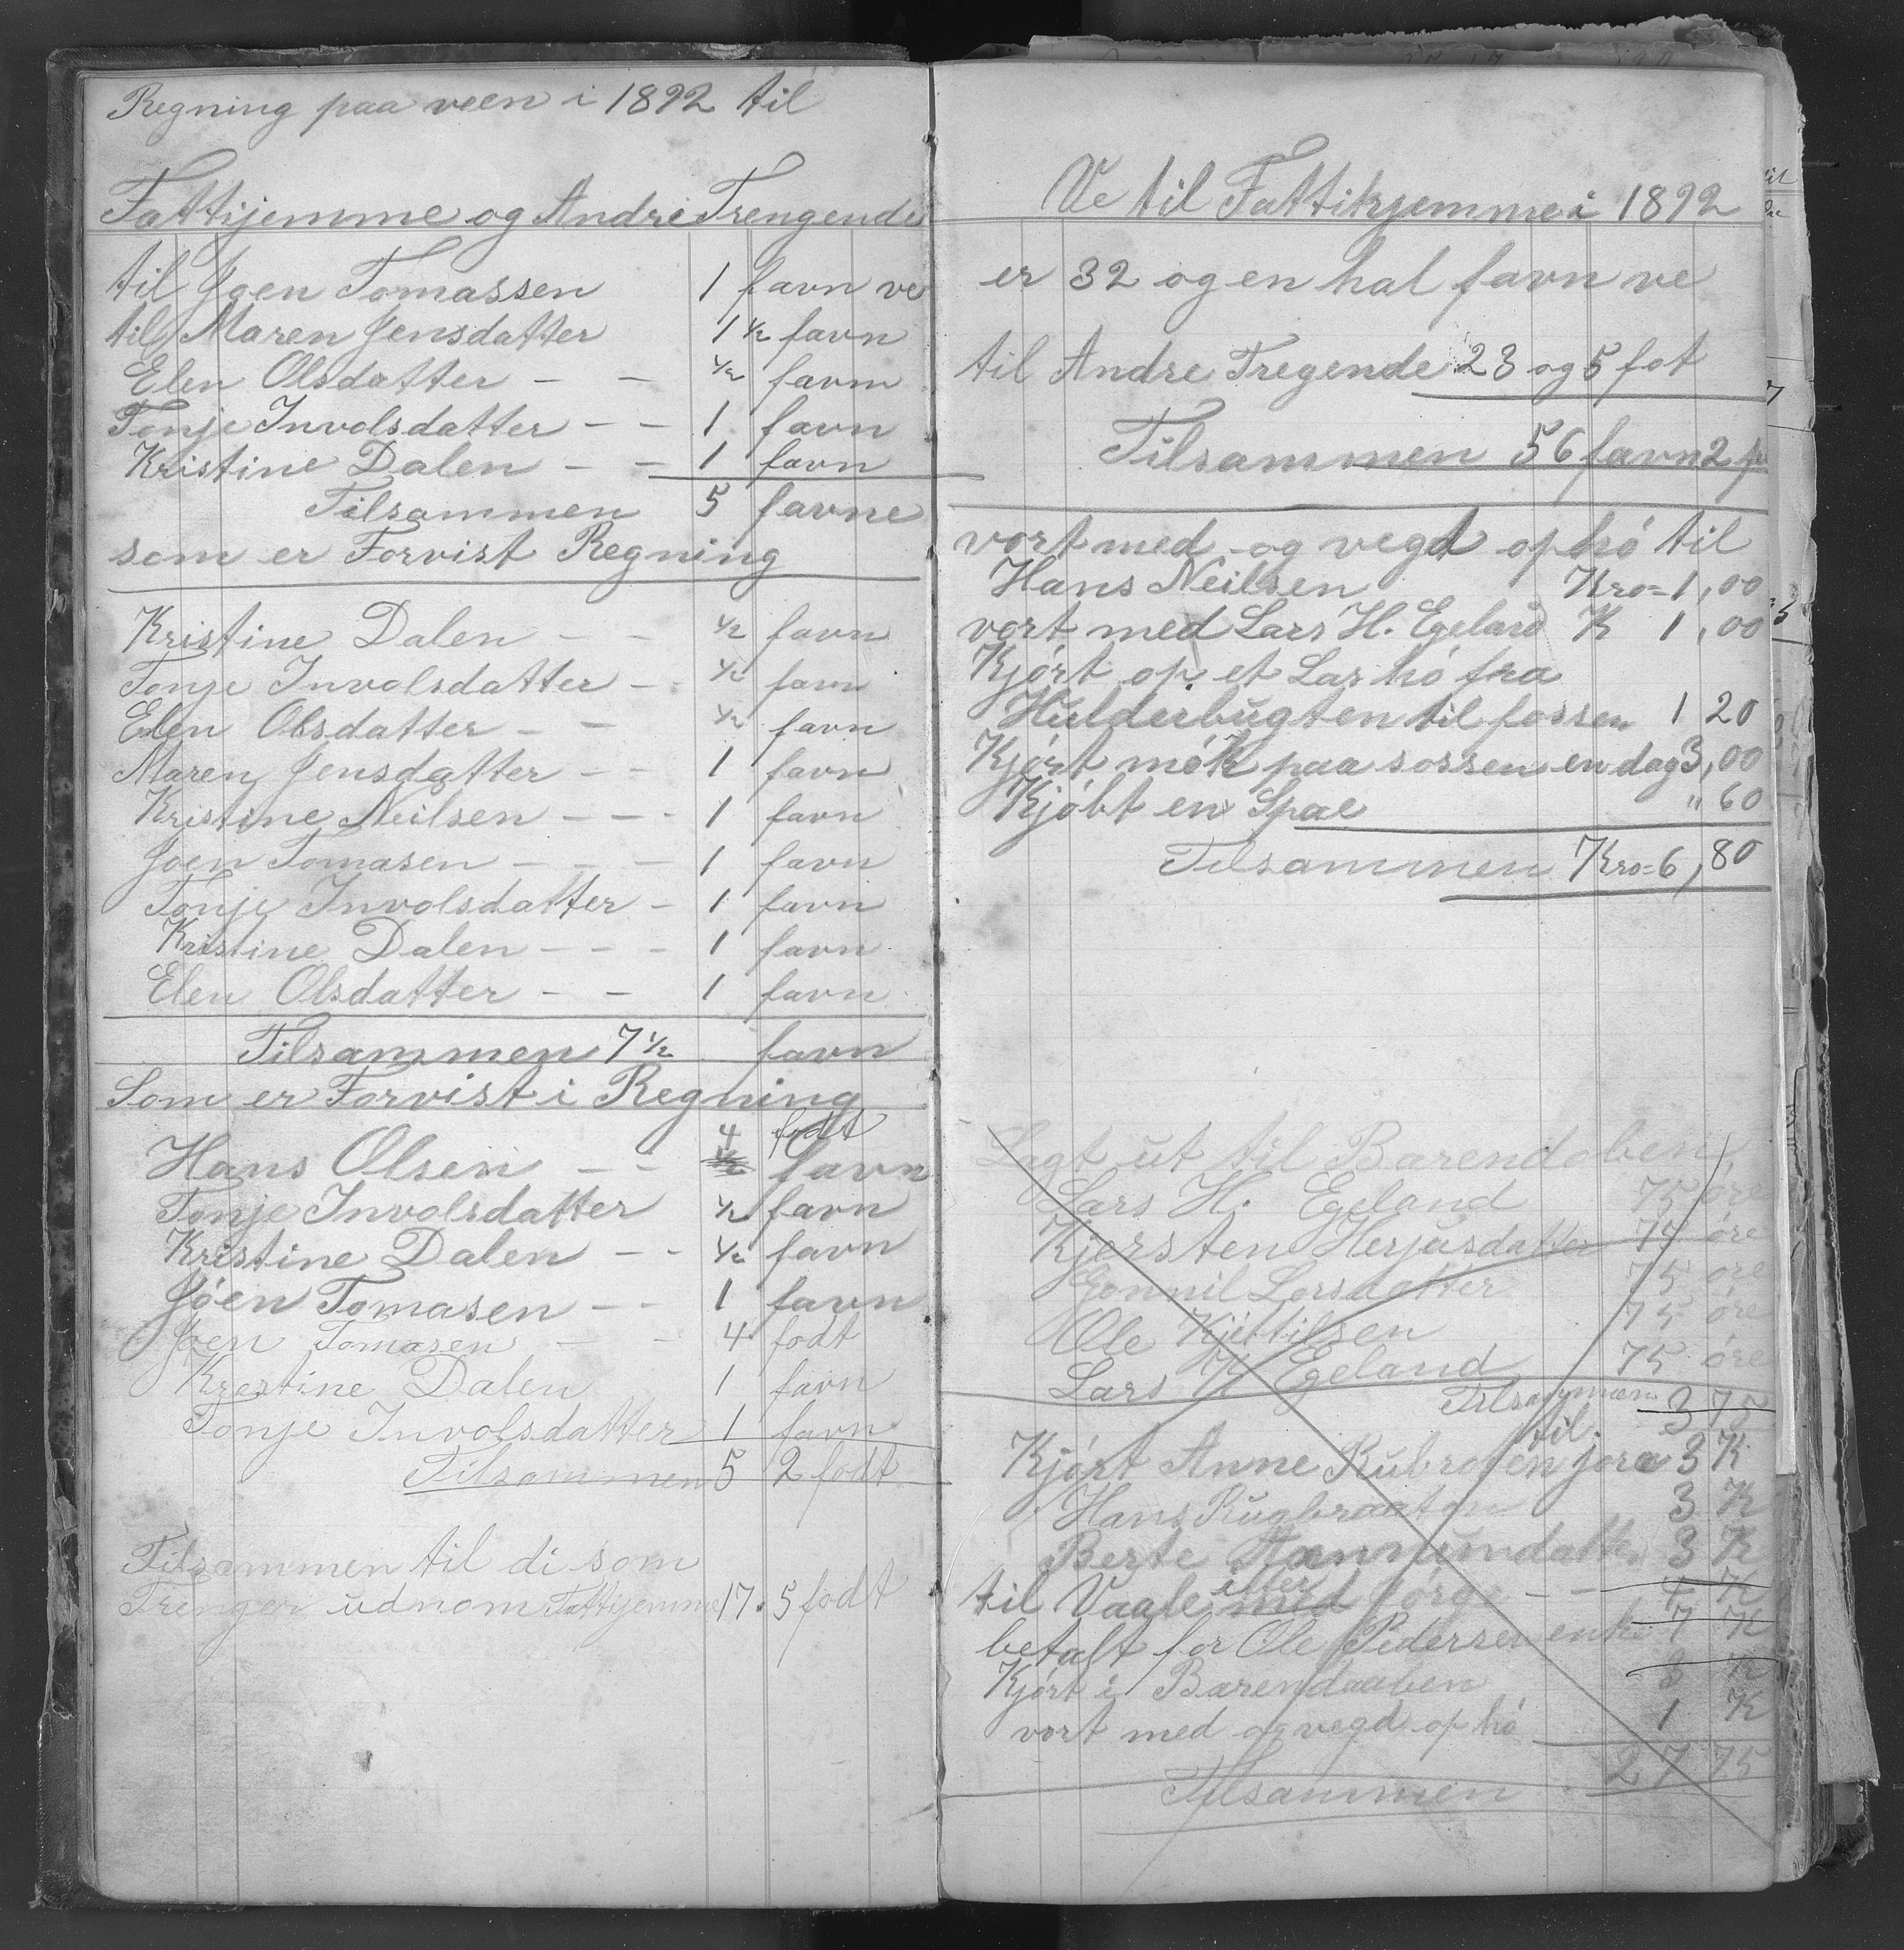 Regning paa veen i 1892 til
Fattijemme og Andre Trengende
til Joen Tomassen 1 favn ve
til Maren Jensdatter 1 ½ favn
Elen Olsdatter - - ½ favn
Tonje Involsdatter - - 1 favn
Kristine Dalen - - 1 favn
Tilsammen 5 favne
som er Forvist Regning
Kristine Dalen - - ½ favn
Tonje Involsdatter - - ½ favn
Elen Olsdatter - - ½ favn
Maren Jensdatter - - 1 favn
Kristine Neilsen - - - 1 favn
Joen Tomasen - - - 1 favn
Tonje Involsdatter - 1 favn
Kristine Dalen - - - 1 favn
Elen Olsdatter - - 1 favn
Tilsammen 7 ½ favn
Som er Forvist i Regning
4 fodt
Hans Olsen - - ½ favn
Tonje Involsdatter ½ favn
Kristine Dalen - - ½ favn
Jóen Tomasen - - 1 favn
Joen Tomasen - - 4 fodt
Krestine Dalen 1 favn
Tonje Involsdatter 1 favn
Tilsammen 5 2 fodt
Tilsammen til di som
Trenger udnom Fattijemme 17. 5 fodt
Ve til Fattikjemme i 1892
er 32 og en hal favn ve
til Andre Tregende 23 og 5 fot
Tilsammen 56 favn 2
vort med og vegd op hó til
Hans Neilsen Kro=1,00
vort med Lars H. Egeland K 1,00
Kjórt op et Las hó fra
Hulderbugten til fossen 1 20
Kjórt mók paa sossen en dag 3,00
Kjóbt en Spae " 60
Tilsammen Kro=6,80
Lagt ut til Barendoben
Lars H. Egeland 75 øre
Kjersten Herjusdatter 75 øre
Gonnil Larsdatter 75 øre
Ole Kjittilsen 75 øre
Lars H Egeland 75 øre
Tilsammen 3 75
til
Kjórt Anne Rubroten jora 3 K
Hans Rugbraaten 3 K
Berte Hannumdatter 3 K
itter
til Vaale med Jorge - - 4 K
betalt for Ole Pedersen enk 7 K
Kjórt i Barendaaben 3 K
vort med og vegd op hó 1 K
Tilsammen 27 75